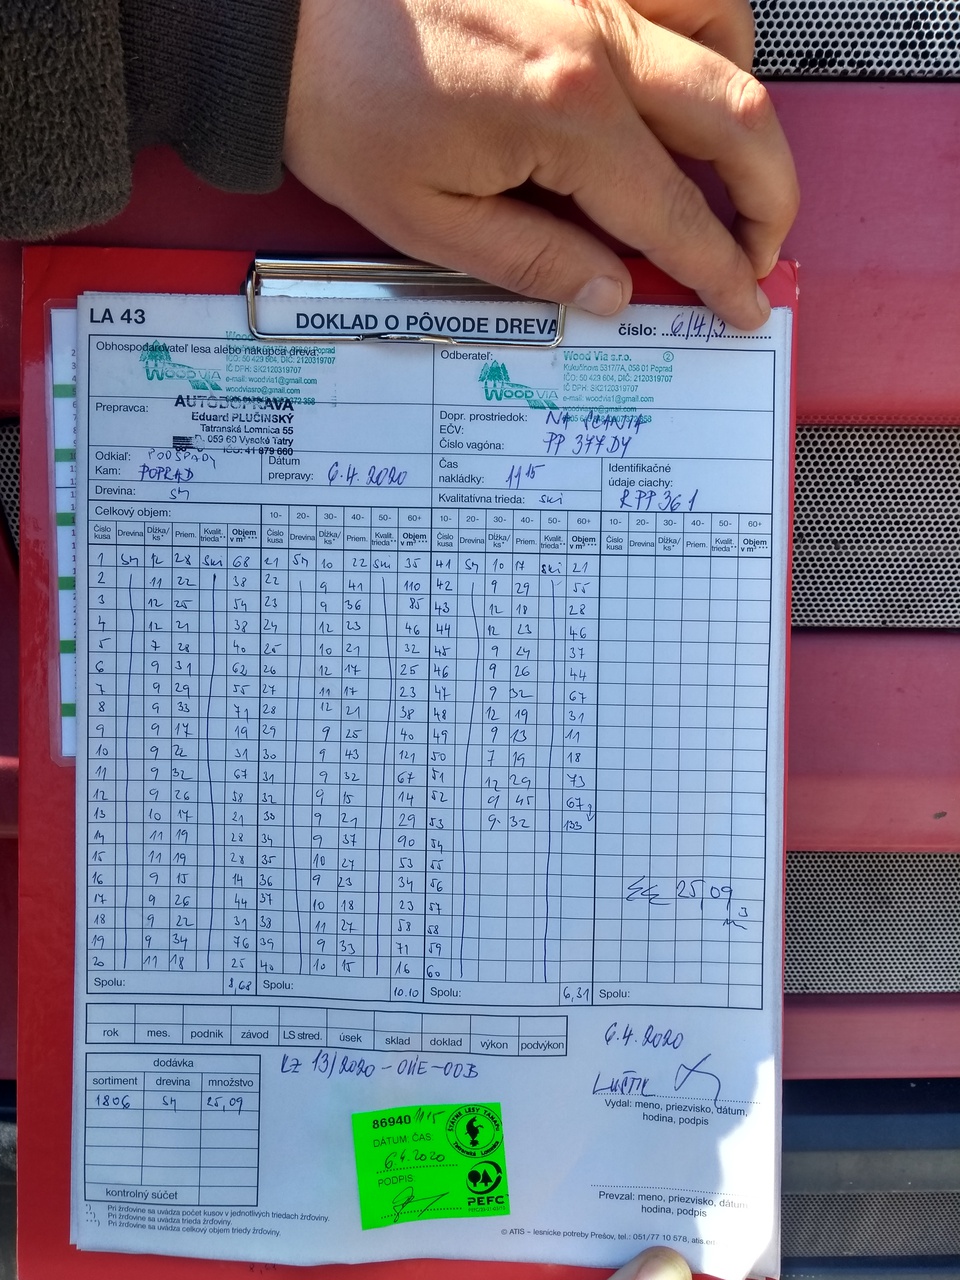 LA 43
DOKLAD O PÔVODE DREVA
číslo: 6/4/2
Obhospodarovateľ lesa alebo nákupca dreva:
Wood Via
058 01 Poprad
IČO: 50 429 604, DIČ: 2120319707
IČ DPH: SK2120319707
e-mail: woodvia1@gmail.com
WOOD VIA
Odberateľ:
Wood Via s.r.o. 2
Kukučínova 5317/7A, 058 01 Poprad
IČO: 50 429 604, DIČ: 2120319707
IČ DPH: SK2120319707
e-mail: woodvia1@gmail.com
WOOD VIA
Prepravca:
AUTODOPRAVA
Eduard PLUČINSKÝ
Tatranská Lomnica 55
059 60 Vysoké Tatry
IČO: 41 879 660
Dopr. prostriedok:
EČV:
Číslo vagóna: PP 377DY
Odkiaľ: PODSPADY
Kam: POPRAD
Dátum prepravy: 6.4.2020
Čas nakládky: 11 15
Identifikačné údaje ciachy: RPP 361
Drevina: SM
Kvalitatívna trieda: SKI
Celkový objem:
10- 20- 30- 40- 50- 60+ 10- 20- 30- 40- 50- 60+ 10- 20- 30- 40- 50- 60+
Číslo kusa Drevina Dĺžka/ks* Priem. Kvalit. trieda** Objem v m³ *** Číslo kusa Drevina Dĺžka/ks* Priem. Kvalit. trieda** Objem v m³ *** Číslo kusa Drevina Dĺžka/ks* Priem. Kvalit. trieda** Objem v m³ *** Číslo kusa Drevina Dĺžka/ks* Priem. Kvalit. trieda** Objem v m³ ***
1 SM 12 28 SKI 68 21 SM 10 22 SKI 35 41 SM 10 17 SKI 21
2 11 22 38 22 9 41 110 42 9 29 55
3 12 25 54 23 9 36 85 43 12 18 28
4 12 21 38 24 12 23 46 44 12 23 46
5 7 28 40 25 10 21 32 45 9 24 37
6 9 31 62 26 12 17 25 46 9 26 44
7 9 29 55 27 11 17 23 47 9 32 67
8 9 33 71 28 12 21 38 48 12 19 31
9 9 17 19 29 9 25 40 49 9 13 11
10 9 22 31 30 9 43 121 50 7 19 18
11 9 32 67 31 9 32 67 51 12 29 73
12 9 26 58 32 9 15 14 52 9 45 67
13 10 17 21 30 9 21 29 53 9 32 133
14 11 19 28 34 9 37 90 54
15 11 19 28 35 10 27 53 55
16 9 15 14 36 9 23 34 56
17 9 26 44 37 10 18 23 57
18 9 22 31 38 11 27 58 58
19 9 34 76 39 9 33 71 59
20 11 18 25 40 10 15 16 60
25,09 m3
Spolu: 8,68 Spolu: 10.10 Spolu: 6,31 Spolu:
rok mes. podnik závod LS stred. úsek sklad doklad výkon podvýkon
6.4.2020
dodávka
sortiment drevina množstvo
1806 SM 25,09
kontrolný súčet
LZ 13/2020-OIIE-003
Vydal: meno, priezvisko, dátum, hodina, podpis
86940 1115
DÁTUM, ČAS
6.4.2020
PODPIS:
ŠTÁTNE LESY TANAPU
Tatranská Lomnica
PEFC
Prevzal: meno, priezvisko, dátum, hodina, podpis
*) Pri žrďovine sa uvádza počet kusov v jednotlivých triedach žrďoviny.
**) Pri žrďovine sa uvádza trieda žrďoviny.
***) Pri žrďovine sa uvádza celkový objem triedy žrďoviny.
© ATIS – lesnícke potreby Prešov, tel.: 051/77 10 578, atis.